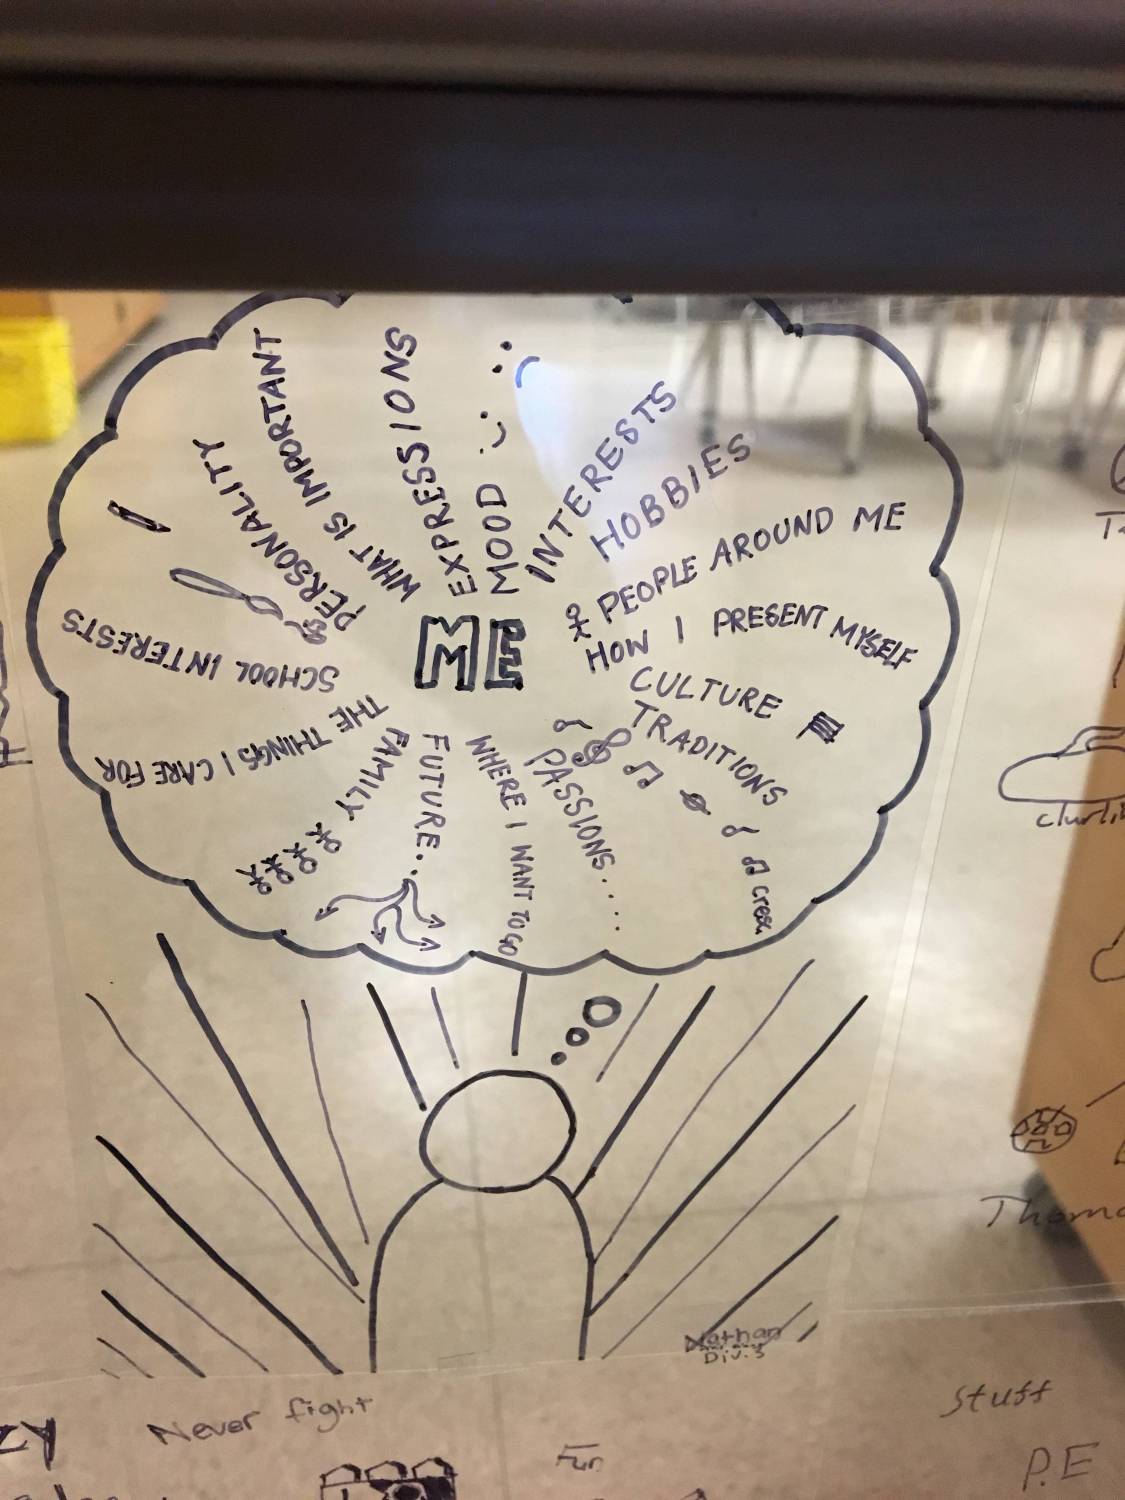 ME
MOOD
INTERESTS
HOBBIES
PEOPLE AROUND ME
HOW I PRESENT MYSELF
CULTURE
TRADITIONS
cresc.
PASSIONS.....
WHERE I WANT TO GO
FUTURE...
FAMILY
THE THINGS I CARE FOR
SCHOOL INTERESTS
PERSONALITY
WHAT IS IMPORTANT
EXPRESSIONS
Nathan
Div.3
Never fight
Fun
Stuff
P.E